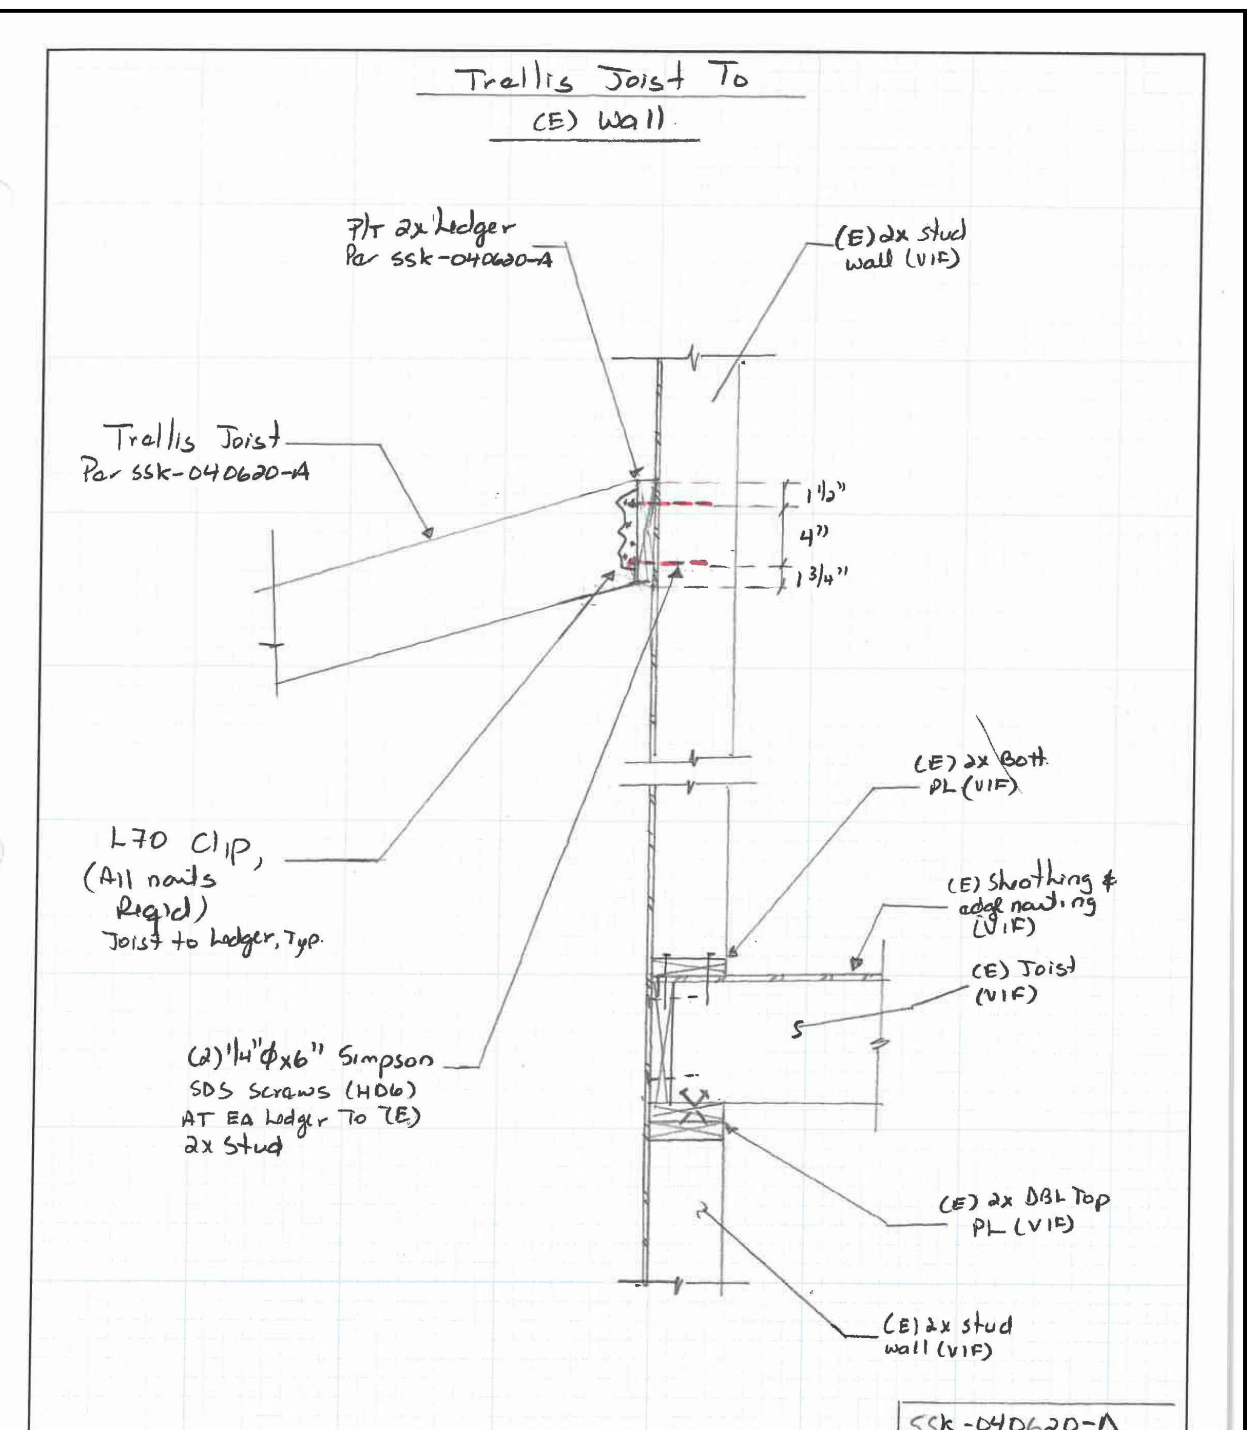 Trellis Joist To
(E) Wall
P/T 2x Ledger
Per SSK-040620-A
(E) 2x Stud
Wall (VIF)
Trellis Joist
Per SSK-040620-A
1 1/2"
4"
1 3/4"
(E) 2x Bott.
PL (VIF)
L70 Clip,
(All nails
Req'd)
Joist to Ledger, Typ.
(E) Sheathing &
edge nailing
(VIF)
(E) Joist
(VIF)
(2) 1/4"ϕx6" Simpson
SDS Screws (HDG)
AT EA Ledger To (E)
2x Stud
(E) 2x DBL Top
PL (VIF)
(E) 2x Stud
wall (VIF)
SSK-040620-A